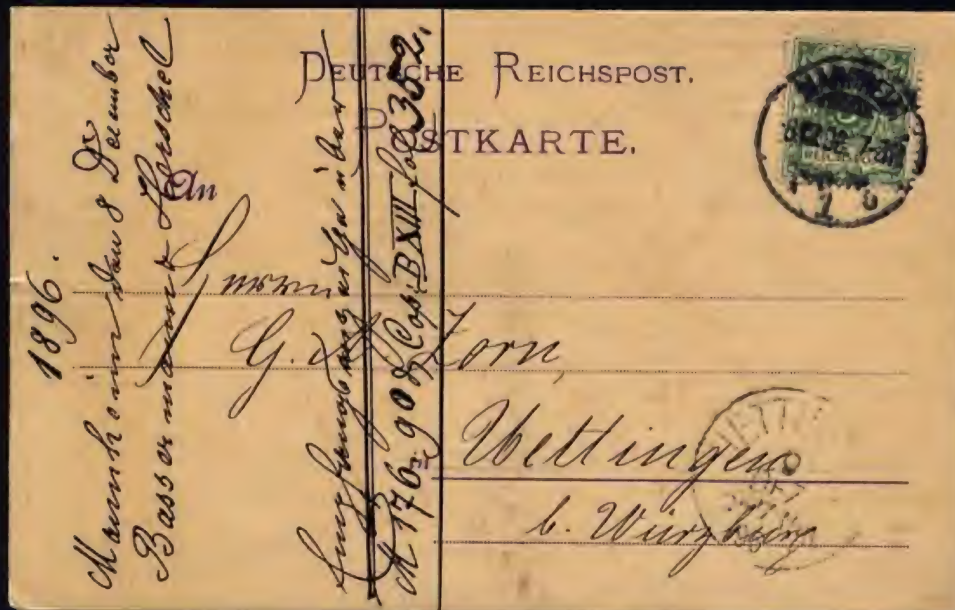 DEUTSCHE REICHSPOST.
POSTKARTE.
An
Herrn
G. A. Zorn,
Uettingen
b. Würzburg
1896.
Mannheim den 8 Dezember
Bassermann & Herschel
Empfangsanzeige über
M 176.90 ₰ Cop. B XIII fol 352.